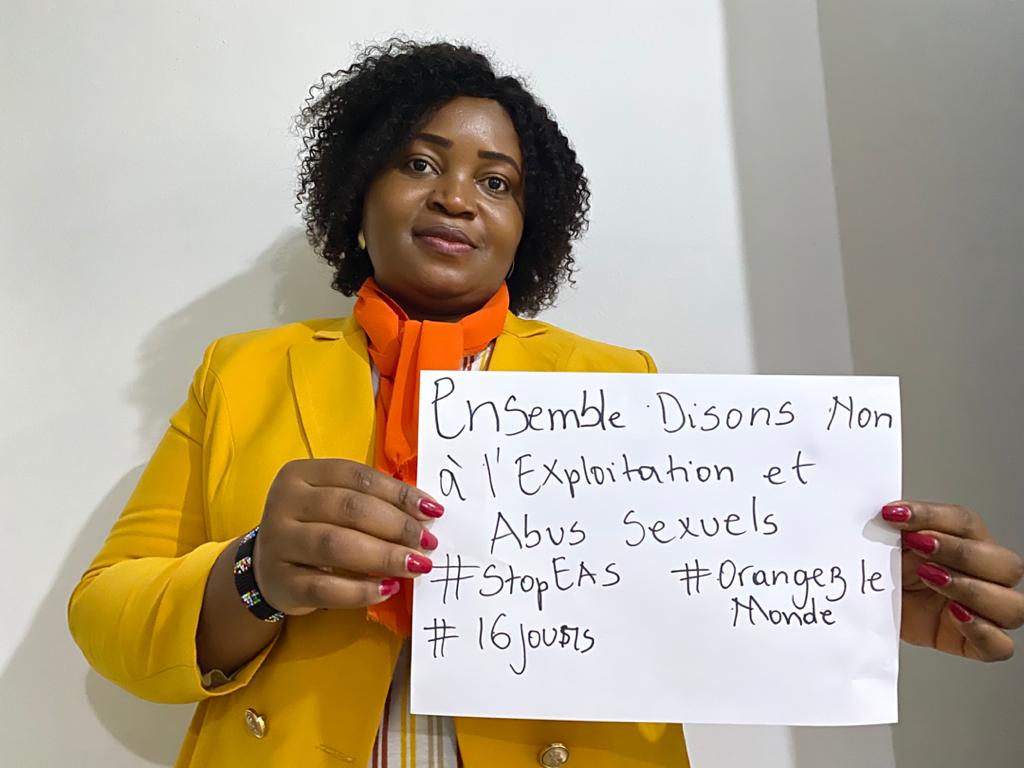 Ensemble Disons Non
à l'Exploitation et
Abus Sexuels
#StopEAS #Orangez le
Monde
#16jours